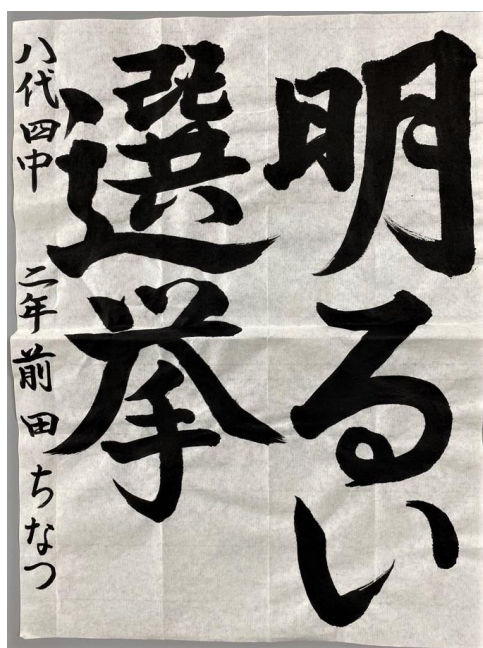 明るい
選挙
八代四中 二年 前田ちなつ